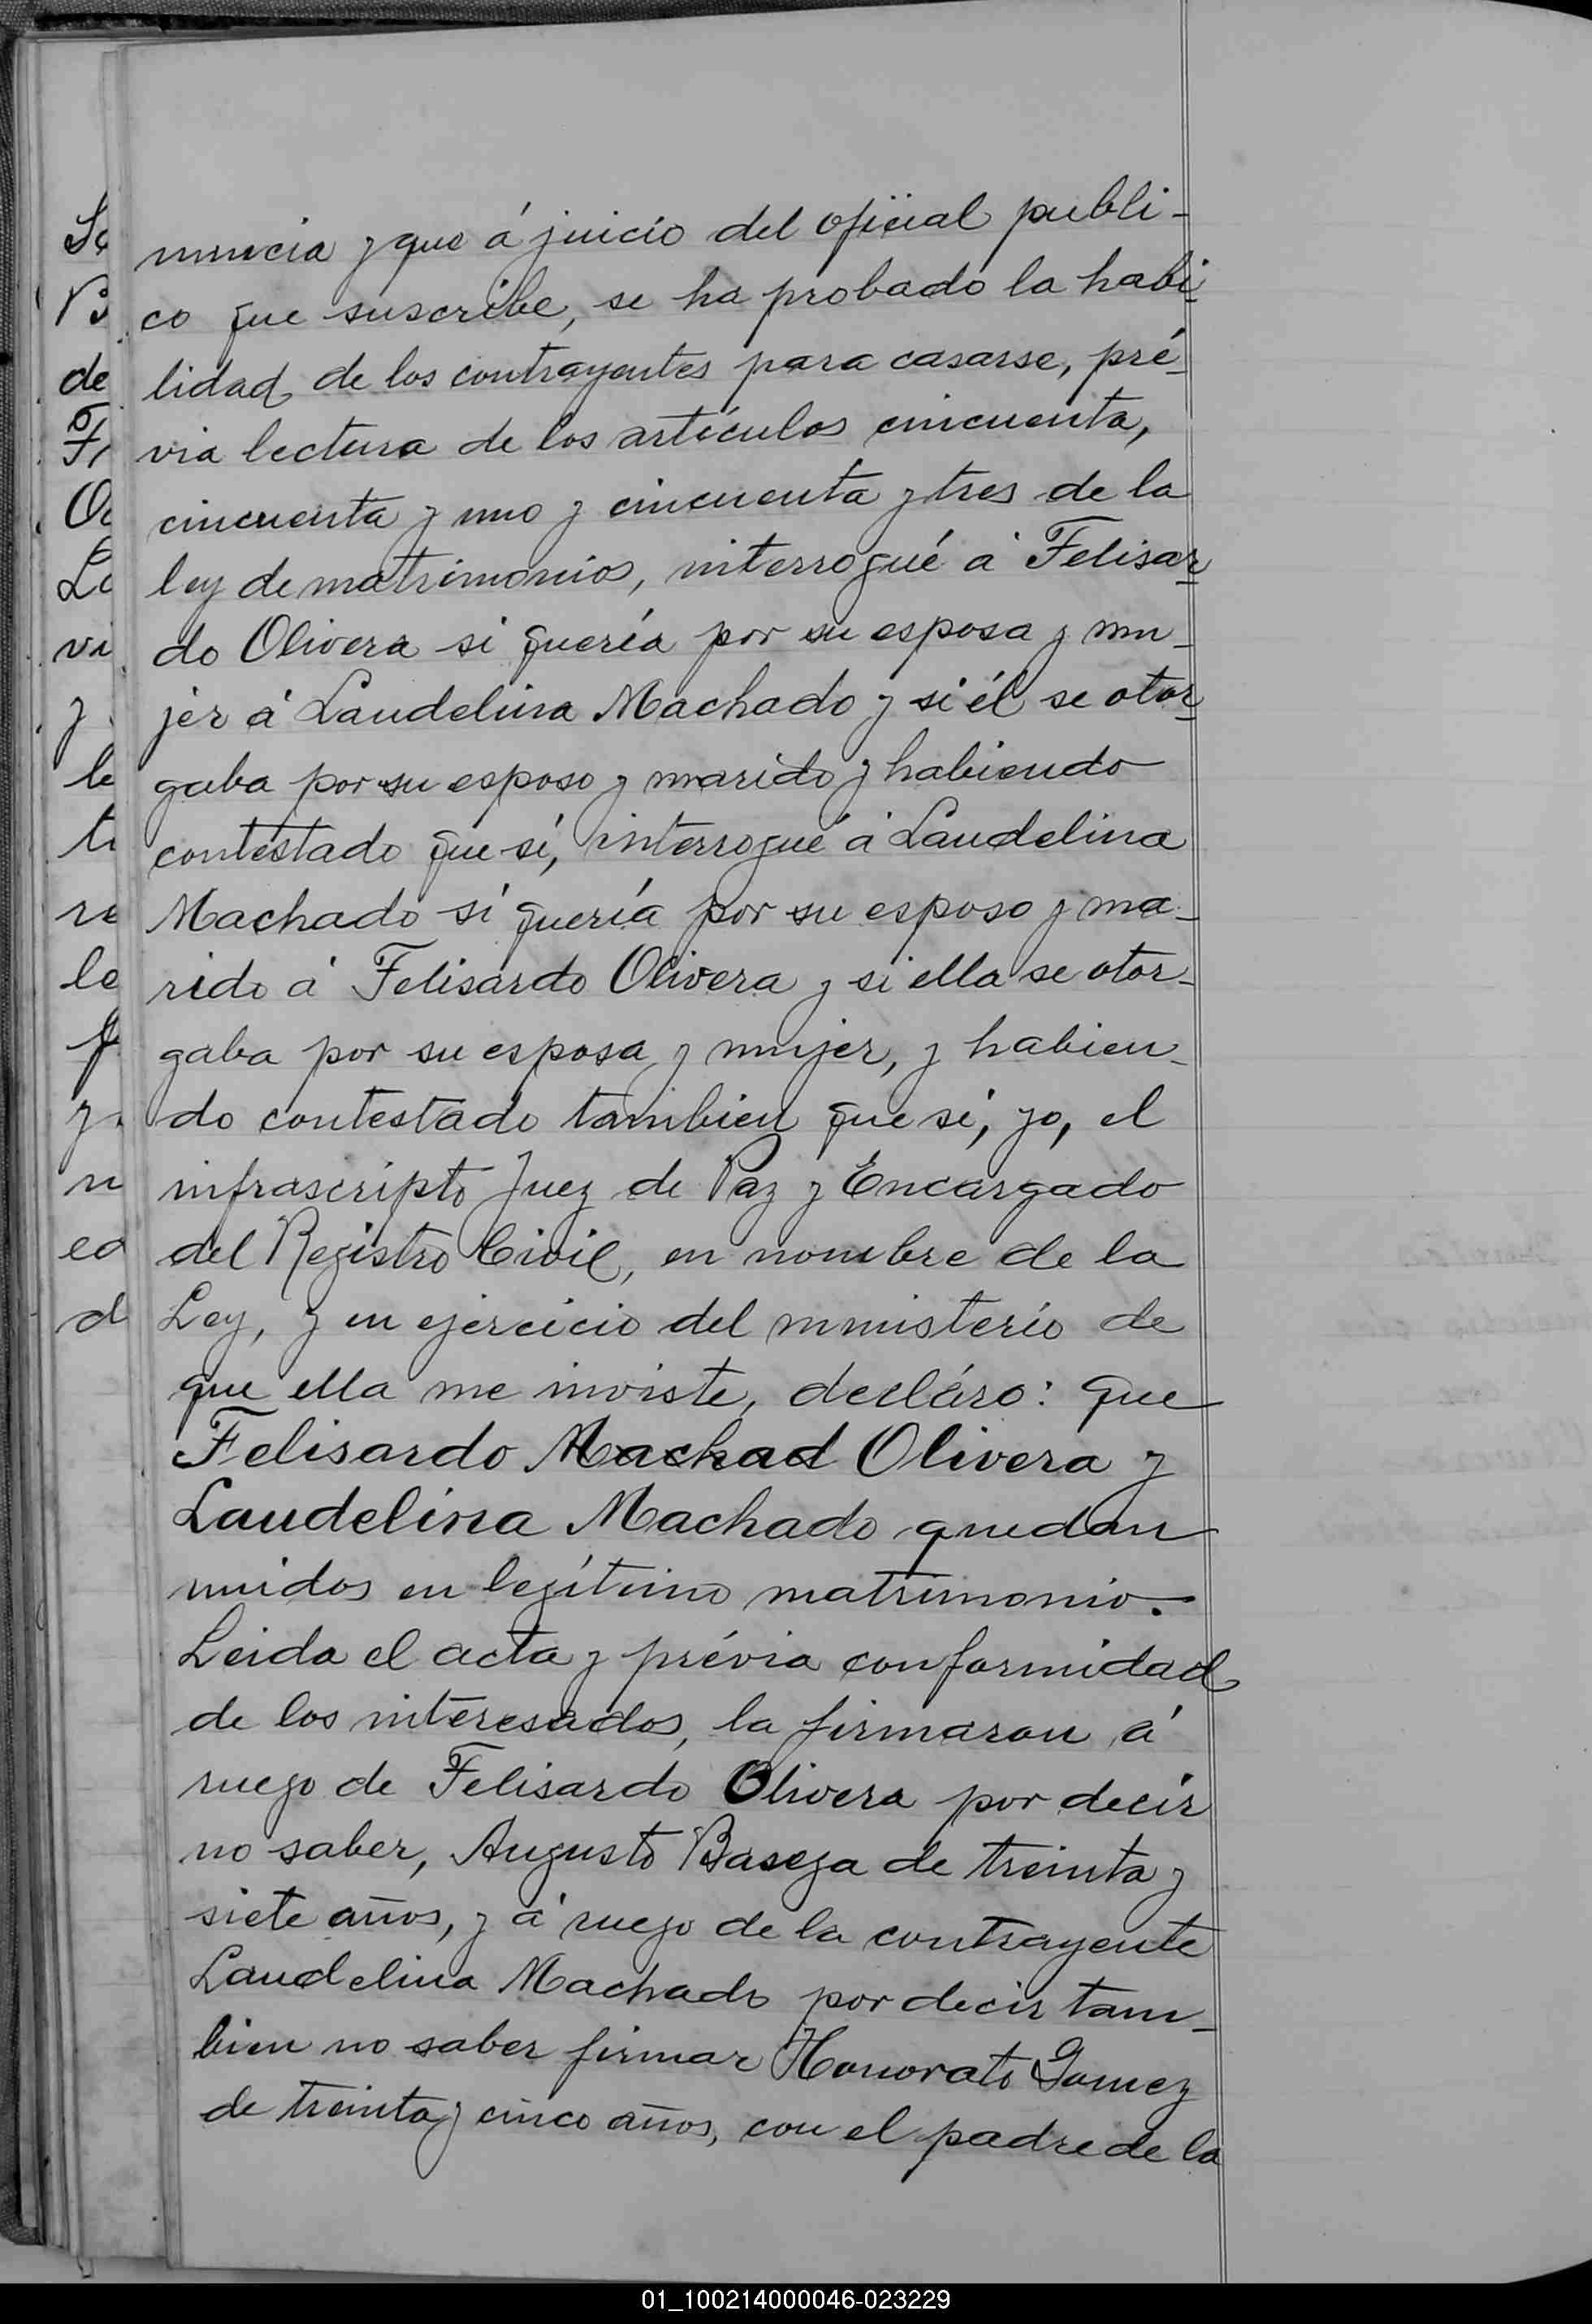 nuncia y que á juicio del oficial publi-
co que suscribe, se ha probado la habi-
lidad de los contrayentes para casarse, pré-
via lectura de los artículos cincuenta,
cincuenta y uno y cincuenta y tres de la
ley de matrimonios, interrogué á Felisar-
do Olivera si quería por su esposa y mu-
jer á Laudelina Machado y si él se otor-
gaba por su esposo y marido y habiendo
contestado que sí, interrogué á Laudelina
Machado si quería por su esposo y ma-
rido á Felisardo Olivera y si ella se otor-
gaba por su esposa y mujer, y habien-
do contestado tambien que si, yo, el
infrascripto Juez de Paz y Encargado
del Registro Civil, en nombre de la
Ley, y en ejercicio del ministerio de
que ella me inviste, decláro: que
Felisardo Machad Olivera y
Laudelina Machado quedan
unidos en legítimo matrimonio.
Leida el acta y prévia conformidad
de los interesados, la firmaron á
ruego de Felisardo Olivera por decir
no saber, Augusto Basega de treinta y
siete años, y á ruego de la contrayente
Laudelina Machado por decir tam-
bien no saber firmar Honorato Gomez
de treinta y cinco años, con el padre de la
01_100214000046-023229